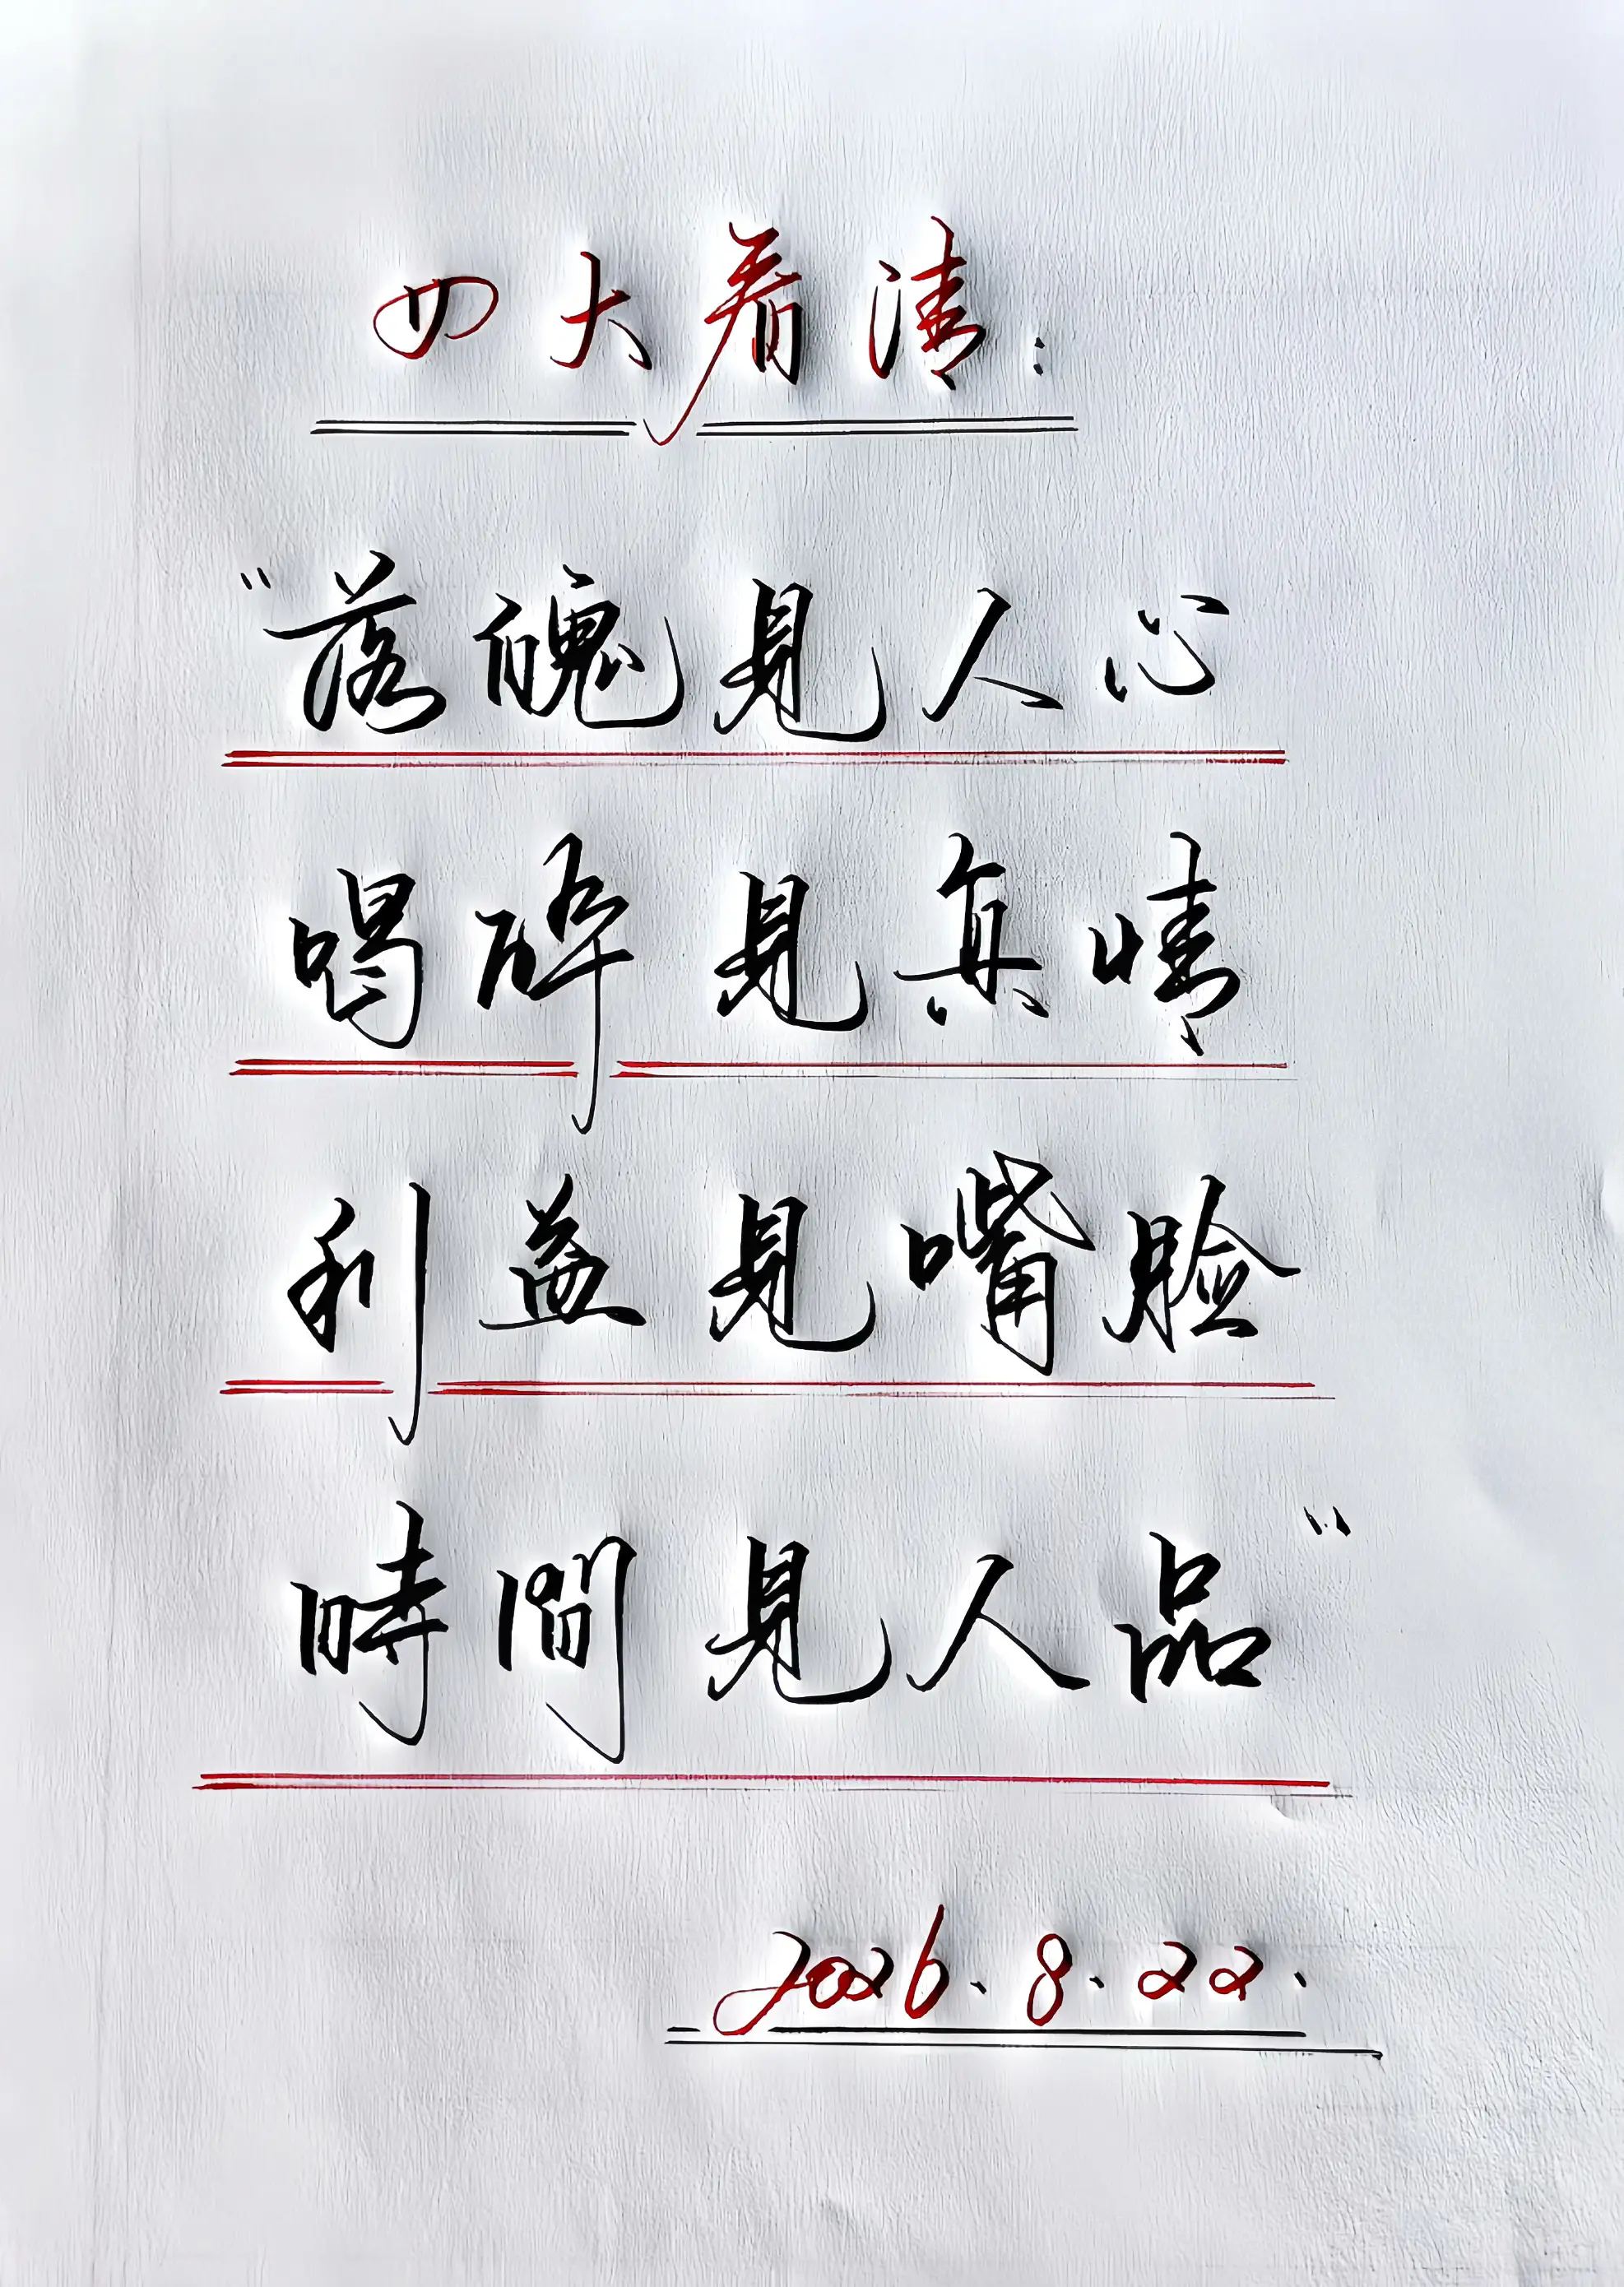 四大看清：
“落魄見人心
喝醉見真情
利益見嘴脸
時間見人品”
2026.8.22.